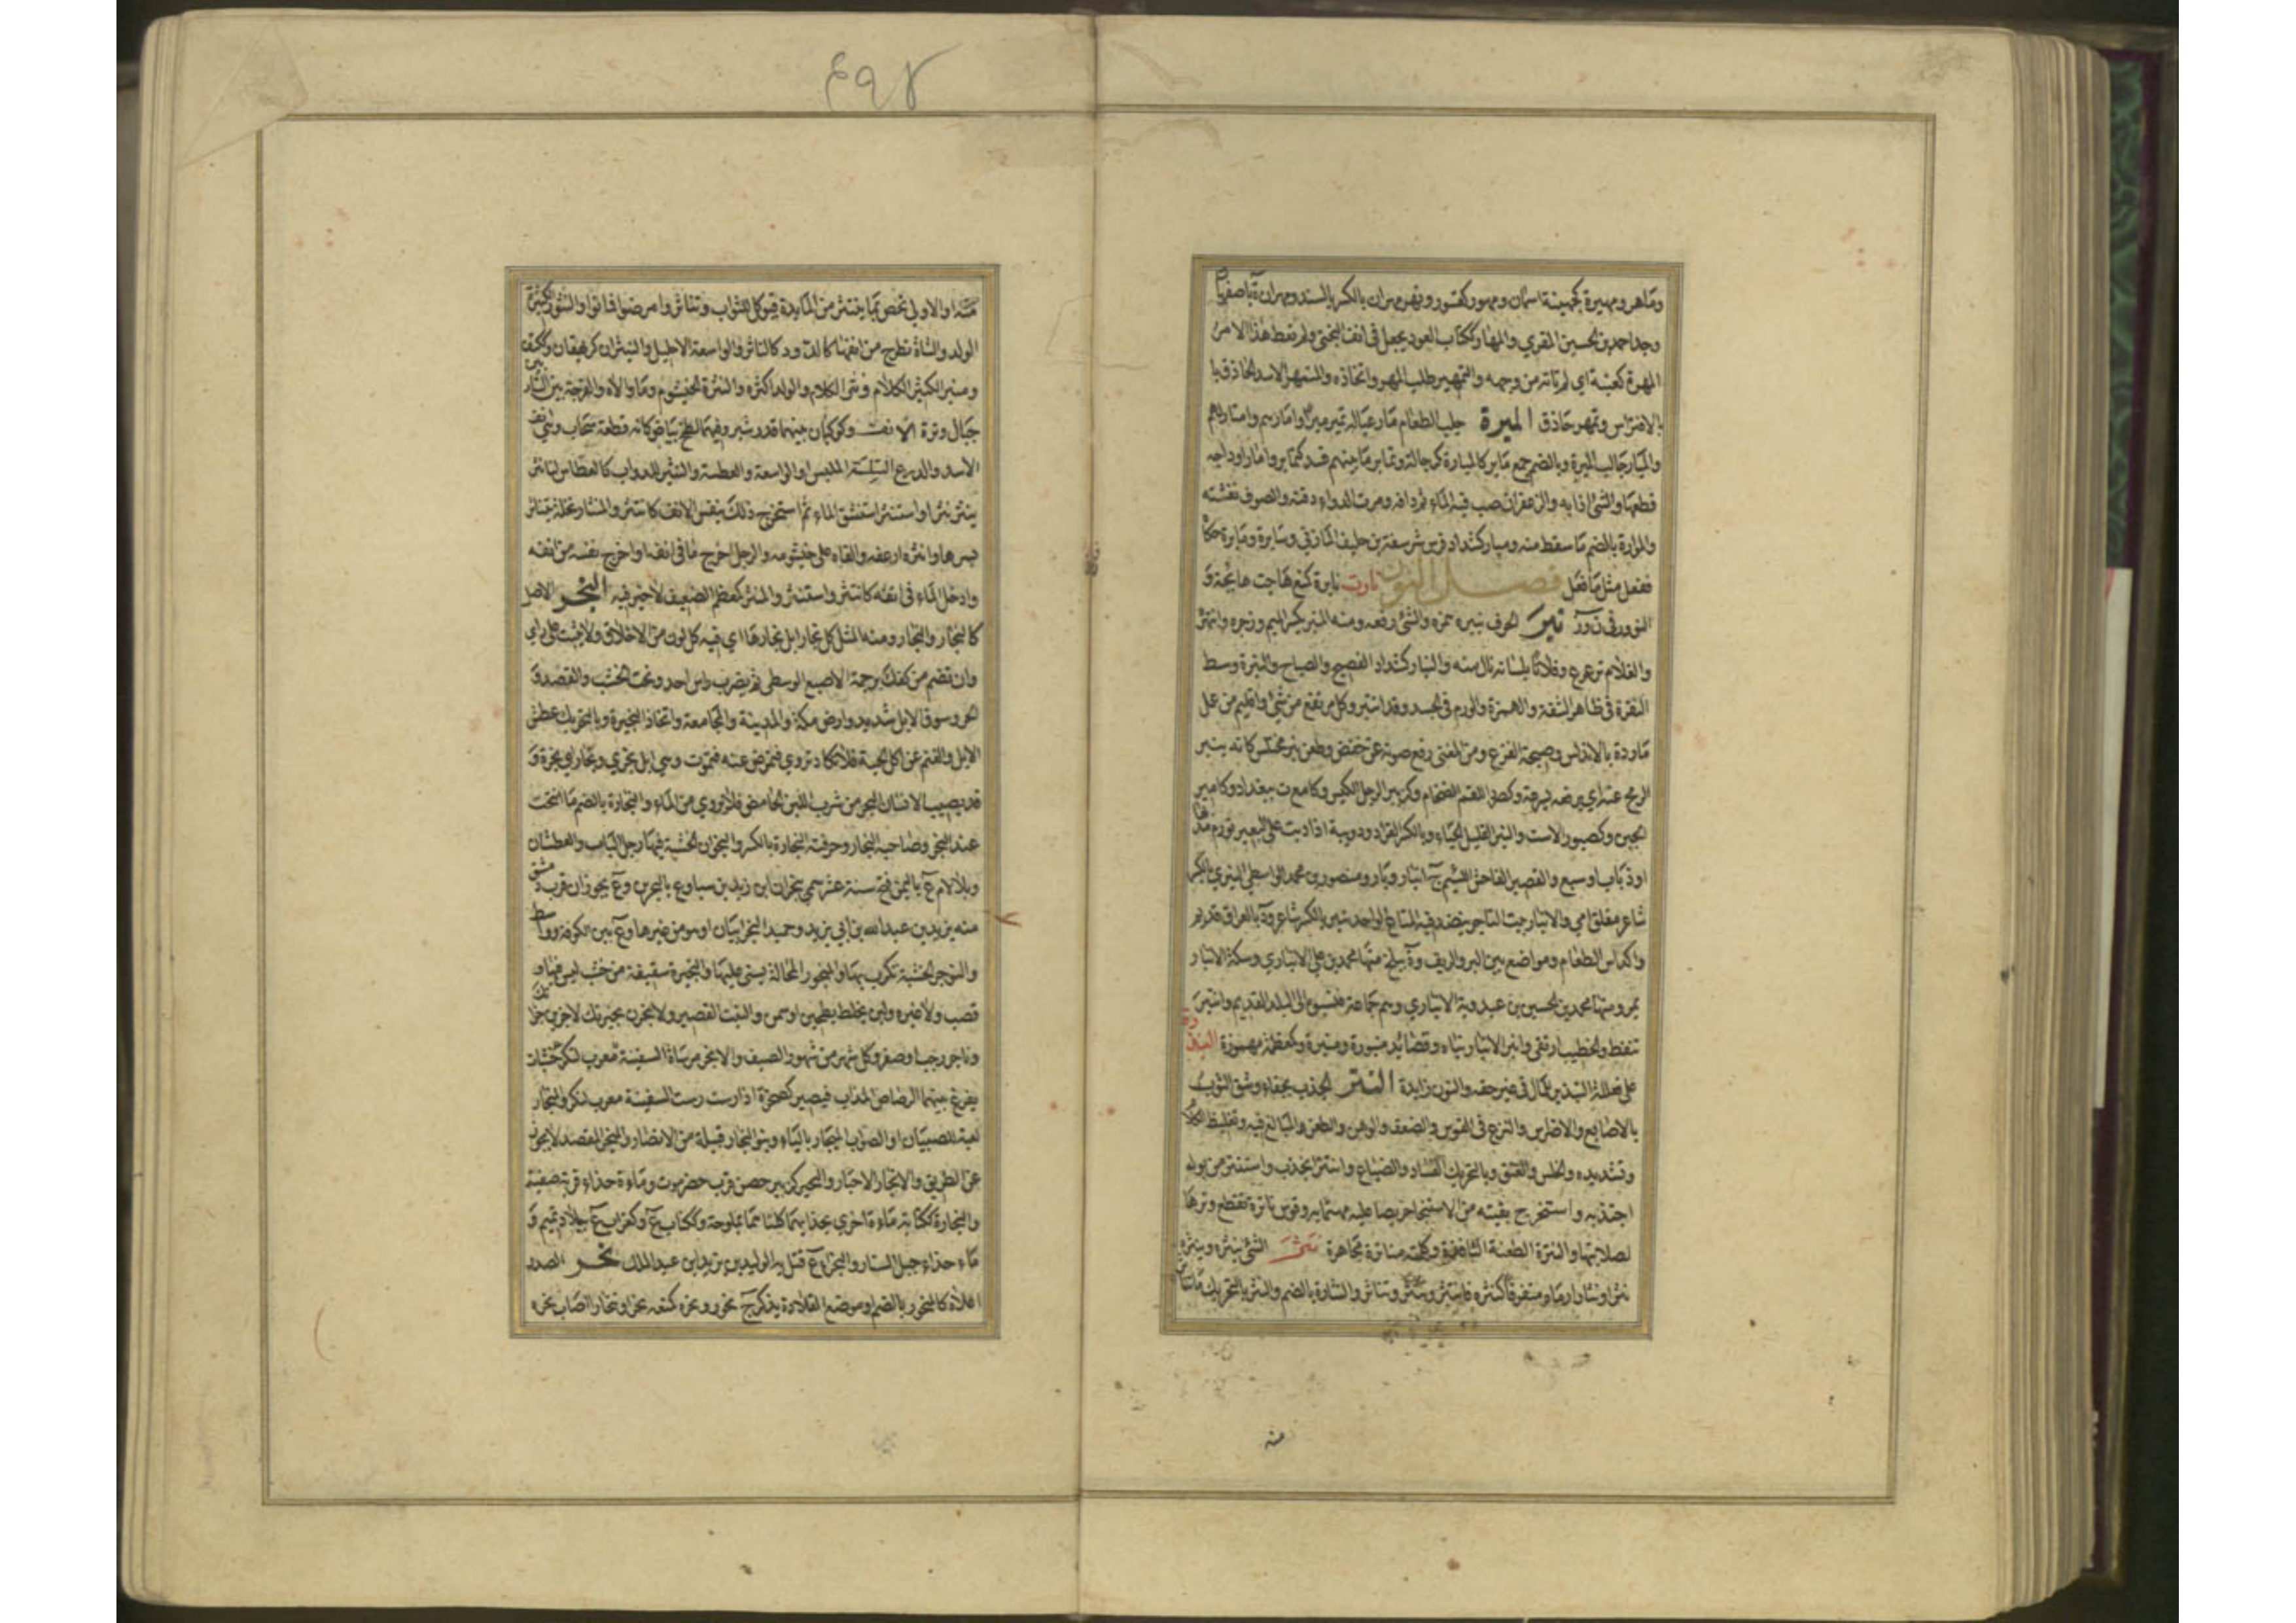 ٤٩٨
وماهر ومهيرة كجهينة اسمان ومهور كقسور ونهر مهران بالكسر بالسند ومهران ة باصفهان
وجد احمد بن الحسين المقري والمهار ككتاب العود يجعل في انف البختي ولم تعط هذا الامر
المهرة كعنبة اي لم تاته من وجهه والتمهير طلب المهر واتخاذه والمتمهر الاسد الحاذق با
بالافتراس وتمهر حاذق الميرة جلب الطعام مار عياله تمير ميرا وامارهم وامتار لهم
والميار جالب الميرة وبالضم جمع مائر كالميارة كرجالة وتماير ما بينهم فسد كتماير وامار اوداجه
قطعها والشئ اذابه والزعفران صب فيه الماء ثم دافه ومرت الدواء دفته والصوف نفشته
والموارة بالضم ما سقط منه وميار كشداد فرس شرسفة بن حليف المازني وسايره ومايره حكا
ففعل مثل ما فعل فصل النون نارت نايرة كمنع هاجت هايجة و
النوور في ن و ر نبر الحرف ينبره همزه والشئ رفعه ومنه المنبر بكسر الميم وزجره وانتهره
والغلام ترعرع وفلانا بلسانه نال منه والنبار كشداد الفصيح والصياح والنبرة وسط
النقرة في ظاهر الشفة والهمزة والورم في الجسد وقد انتبر وكل مرتفع من شئ واقليم من عمل
ماردة بالاندلس وصيحة الفزع ومن المغني رفع صوته عن خفض وطعن نبر مختلس كانه ينبر
الرمح عنه اي يرفعه بسرعة وكصرد اللقم الضخام وكزبير الرجل الكيس وكامع ة ببغداد وكامير
الجبن وكصبور الاست والنبر القليل الحياء وبالكسر القراد ودويبة اذا دبت على البعير تورم مدبها
او ذباب او سبع والقصير الفاحش اللئيم ج انبار ونبار ومنصور بن محمد الواسطي النبري بالكسر
شاعر مفلق امي والانبار بيت التاجر ينضد فيه المتاع الواحد نبر بالكسر شاعر ود بالعراق قديم
واكداس الطعام ومواضع بين البر والريف وة ببلخ منها محمد بن علي الانباري وسكة الانبار
بمرو منها محمد بن الحسين بن عبدوية الانباري وهم جماعة فنسبوه الى البلد القديم وانتبر
تنفط والخطيب ارتقى وانبر الانبار بناه وقصائد منبورة ومنبرة وكمعظمة مهموزة
على فعللة التبذير للمال في غير حقه والنون زايدة النتر الجذب بجفاء وشق الثوب
بالاصابع والاضراس والنزع في القوس والضعف والوهن والطعن والمبالغ فيه وتغليظ الكلام
وتشديده والخلس والعنق وبالتحريك الفساد والضياع وانتتر انجذب واستنتر من بوله
اجتذبه واستخرج بقيته من الاستنجا حريصا عليه مهتما به وقوس ناترة تقطع وترها
لصلابتها والنترة الطعنة النافذة وكلمته مناترة مجاهرة نثر الشئ ينثره وينثره
نثرا ونثارا رماه متفرقا كنثره فانتثر وتنثر وتناثر والنثارة بالضم والنثر بالتحريك ما تناثر
منه
منه او الاولى تخص بما ينتثر من المايدة فيوكل للثواب وتناثروا مرضوا فماتوا والنثور الكثيرة
الولد والشاة تطرح من انفها كالدود كالناثر والواسعة الاحليل والنيثران كرهيقان وككتف
ومنبر الكثير الكلام ونثر الكلام والولد اكثره والنثرة الخيشوم وما والاه والفرجة بين الشاربين
حيال وترة الانف وكوكبان بينهما قدر شبر وفيهما لطخ بياض كانه قطعة سحاب وهي انف
الاسد والدرع السلسة الملبس او الواسعة والعطسة والنثير للدواب كالعطاس لنا نثر
ينثر نثرا واستنثر استنشق الماء ثم استخرج ذلك بنفس الانف كانتثر والمنثار نخلة يتناثر
بسرها وانثره ارعفه والقاه على خيشومه والرجل اخرج ما في انفه او اخرج نفسه من انفه
وادخل الماء في انفه كانتثر واستنثر والمنثر كمعظم الضعيف لا خير فيه النجر الاصل
كالنجار والنجار ومنه المثل كل نجار ابل نجارها اي فيه كل لون من الاخلاق ولا يثبت على راي
وان تضم من كفك برجمة الاصبع الوسطى ثم يضرب راس احد ونحت الخشب والقصد و
الحر وسوق الابل شديد وارض مكة والمدينة والمجامعة واتخاذ النجيرة وبالتحريك عطش
الابل والغنم عن اكل الحبة فلا تكاد تروي فتمرض عنه فتموت وهي ابل نجري ونجاري ونجرة و
قد يصيب الانسان النجر من شرب اللبن الحامض فلا يروي من الماء والنجارة بالضم ما انتحت
عند النجر وصاحبه النجار وحرفته النجارة بالكسر والنجران الخشبة فيها رجل الباب والعطشان
وبلا لام ع باليمن فتح سنة عشر سمي بنجران ابن زيد بن سبا وع بالبحرين وع بحوران قرب دمشق
منه يزيد بن عبد الله بن ابي يزيد وحميد النجرانيان او هو من غيرها وع بين الكوفة وواسط
والنوجر الخشبة تكرب بها والمنجور المحالة يسنى عليها والنجيرة سقيفة من خشب ليس فيها
قصب ولا غيره ولبن يخلط بطحين او سمن والنبت القصير ولانجرن نجيرتك لاجزين جزاك
وناجر رجب او صفر وكل شهر من شهور الصيف والانجر مرساة السفينة معرب لنكر خشبات
يفرغ بينها الرصاص المذاب فيصير كصخرة اذا رست رست السفينة معرب لنكر والنجار
لعبة للصبيان او الصواب الميجار بالياء وبنو النجار قبيلة من الانصار والمنجر المقصد لا يجوز
عن الطريق والانجار الاجار والنجير كزبير حصن قرب حضرموت وماءة حذاء قرية صفينة
والنجارة ككتابة ماءة اخرى بحذائها كلتاهما بملوحة وككتاب ع وكغراب ع ببلاد تميم و
ماء حذاء جبل الستار والنجراء ع قتل به الوليد بن يزيد ابن عبد الملك نحر الصدر
اعلاه كالمنحور بالضم او موضع القلادة يذكر ج نحور ونحره كمنعه نحرا وتنحارا اصاب نحره